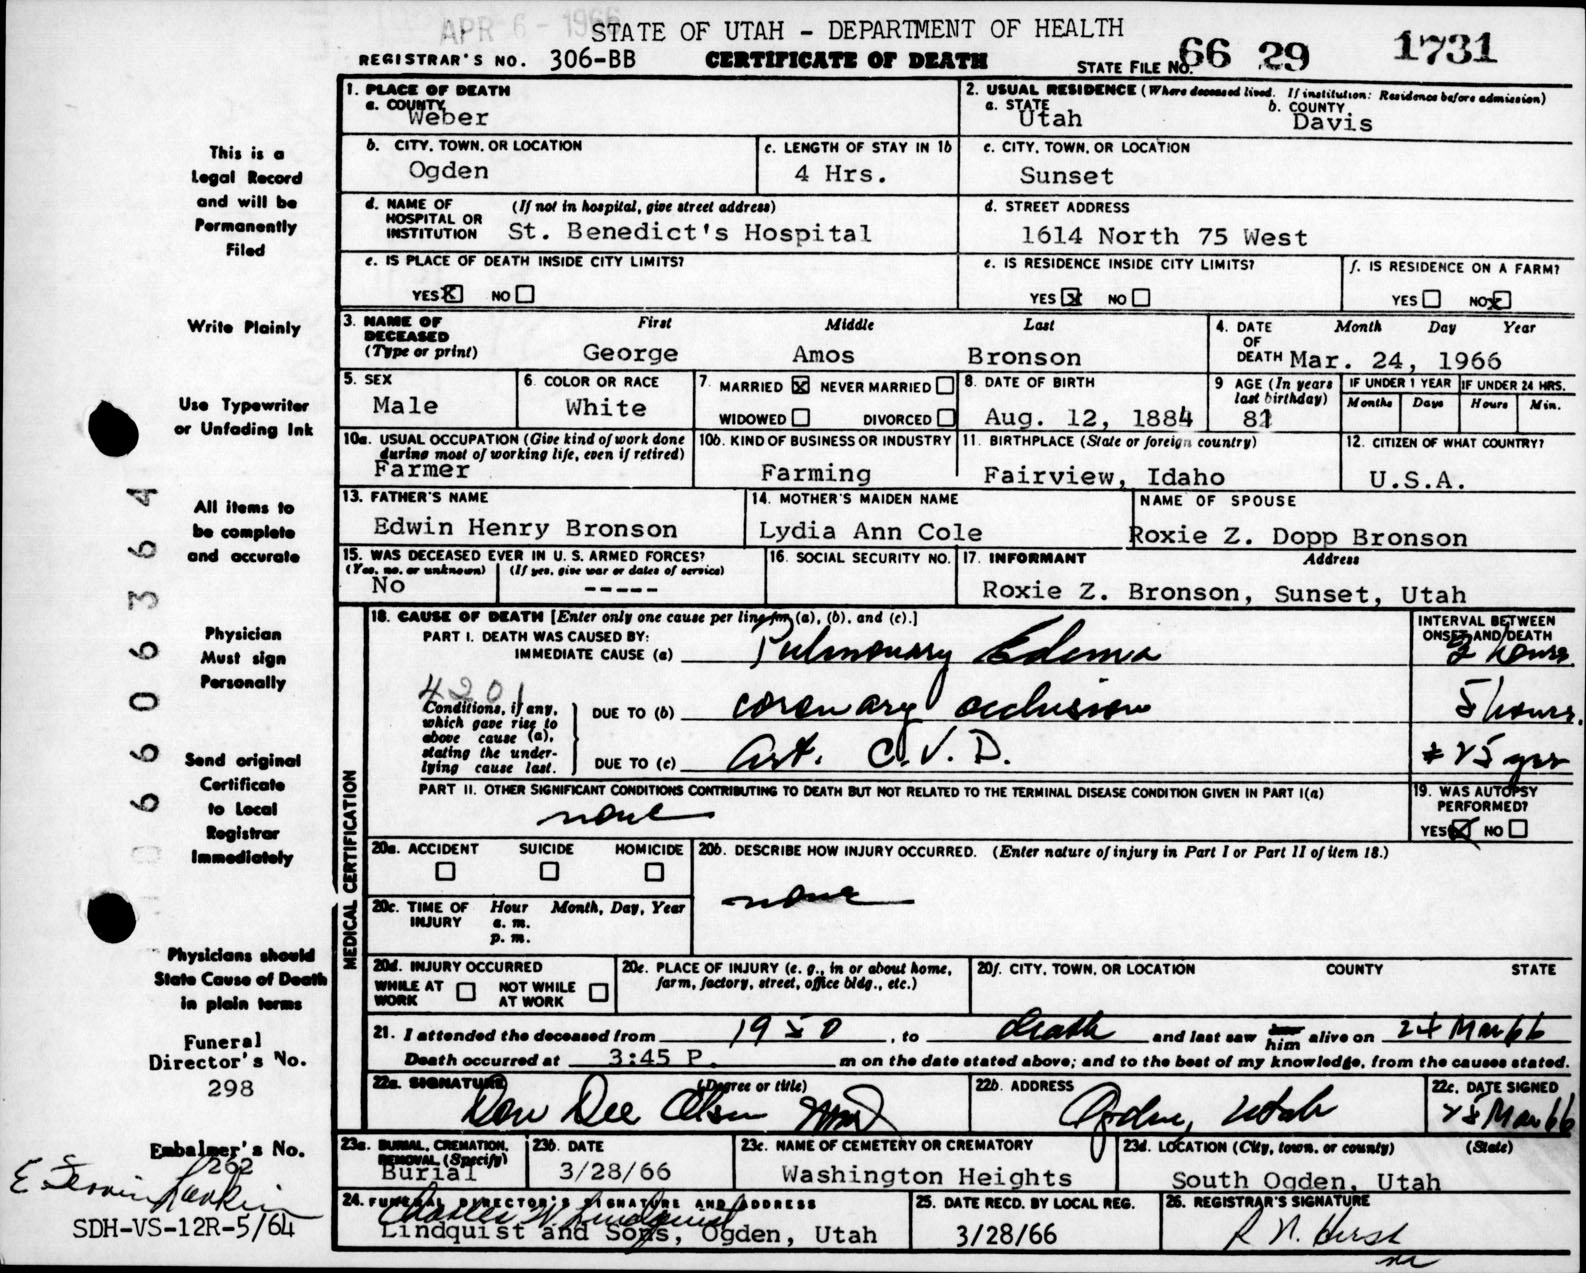 APR 6 - 1966
STATE OF UTAH - DEPARTMENT OF HEALTH
REGISTRAR'S NO. 306-BB CERTIFICATE OF DEATH STATE FILE NO. 66 29 1731
1. PLACE OF DEATH
a. COUNTY
Weber
2. USUAL RESIDENCE (Where deceased lived. If institution: Residence before admission)
a. STATE b. COUNTY
Utah Davis
b. CITY, TOWN, OR LOCATION
Ogden
c. LENGTH OF STAY IN 1b
4 Hrs.
c. CITY, TOWN, OR LOCATION
Sunset
d. NAME OF HOSPITAL OR INSTITUTION (If not in hospital, give street address)
St. Benedict's Hospital
d. STREET ADDRESS
1614 North 75 West
e. IS PLACE OF DEATH INSIDE CITY LIMITS?
YES X NO
e. IS RESIDENCE INSIDE CITY LIMITS?
YES X NO
f. IS RESIDENCE ON A FARM?
YES NO X
3. NAME OF DECEASED (Type or print)
First Middle Last
George Amos Bronson
4. DATE OF DEATH
Month Day Year
Mar. 24, 1966
5. SEX
Male
6. COLOR OR RACE
White
7. MARRIED X NEVER MARRIED
WIDOWED DIVORCED
8. DATE OF BIRTH
Aug. 12, 1884
9 AGE (In years last birthday)
81
IF UNDER 1 YEAR
Months Days
IF UNDER 24 HRS.
Hours Min.
10a. USUAL OCCUPATION (Give kind of work done during most of working life, even if retired)
Farmer
10b. KIND OF BUSINESS OR INDUSTRY
Farming
11. BIRTHPLACE (State or foreign country)
Fairview, Idaho
12. CITIZEN OF WHAT COUNTRY?
U.S.A.
13. FATHER'S NAME
Edwin Henry Bronson
14. MOTHER'S MAIDEN NAME
Lydia Ann Cole
NAME OF SPOUSE
Roxie Z. Dopp Bronson
15. WAS DECEASED EVER IN U. S. ARMED FORCES?
(Yes, no, or unknown) (If yes, give war or dates of service)
No -----
16. SOCIAL SECURITY NO.
17. INFORMANT Address
Roxie Z. Bronson, Sunset, Utah
MEDICAL CERTIFICATION
18. CAUSE OF DEATH [Enter only one cause per line for (a), (b), and (c).]
PART I. DEATH WAS CAUSED BY:
IMMEDIATE CAUSE (a) Pulmonary Edema
INTERVAL BETWEEN ONSET AND DEATH
2 hours
4201
Conditions, if any, which gave rise to above cause (a), stating the underlying cause last.
DUE TO (b) coronary occlusion 5 hours
DUE TO (c) Art. C.V.D. ± 25 yrs
PART II. OTHER SIGNIFICANT CONDITIONS CONTRIBUTING TO DEATH BUT NOT RELATED TO THE TERMINAL DISEASE CONDITION GIVEN IN PART I(a)
none
19. WAS AUTOPSY PERFORMED?
YES X NO
20a. ACCIDENT SUICIDE HOMICIDE
20b. DESCRIBE HOW INJURY OCCURRED. (Enter nature of injury in Part I or Part II of item 18.)
none
20c. TIME OF INJURY Hour Month, Day, Year
a. m.
p. m.
20d. INJURY OCCURRED
WHILE AT WORK NOT WHILE AT WORK
20e. PLACE OF INJURY (e. g., in or about home, farm, factory, street, office bldg., etc.)
20f. CITY, TOWN, OR LOCATION COUNTY STATE
21. I attended the deceased from 1950, to death and last saw him alive on 24 Mar 66
Death occurred at 3:45 P. m on the date stated above; and to the best of my knowledge, from the causes stated.
22a. SIGNATURE (Degree or title)
Don Dee Olsen MD
22b. ADDRESS
Ogden, Utah
22c. DATE SIGNED
25 Mar 66
23a. BURIAL, CREMATION, REMOVAL (Specify)
Burial
23b. DATE
3/28/66
23c. NAME OF CEMETERY OR CREMATORY
Washington Heights
23d. LOCATION (City, town, or county) (State)
South Ogden, Utah
24. FUNERAL DIRECTOR'S SIGNATURE AND ADDRESS
Charles W Lindquist
Lindquist and Sons, Ogden, Utah
25. DATE RECD. BY LOCAL REG.
3/28/66
26. REGISTRAR'S SIGNATURE
R N. Hirst
This is a
Legal Record
and will be
Permanently
Filed
Write Plainly
Use Typewriter
or Unfading Ink
All items to
be complete
and accurate
Physician
Must sign
Personally
Send original
Certificate
to Local
Registrar
Immediately
Physicians should
State Cause of Death
in plain terms
Funeral
Director's No.
298
Embalmer's No.
262
SDH-VS-12R-5/64
06606364